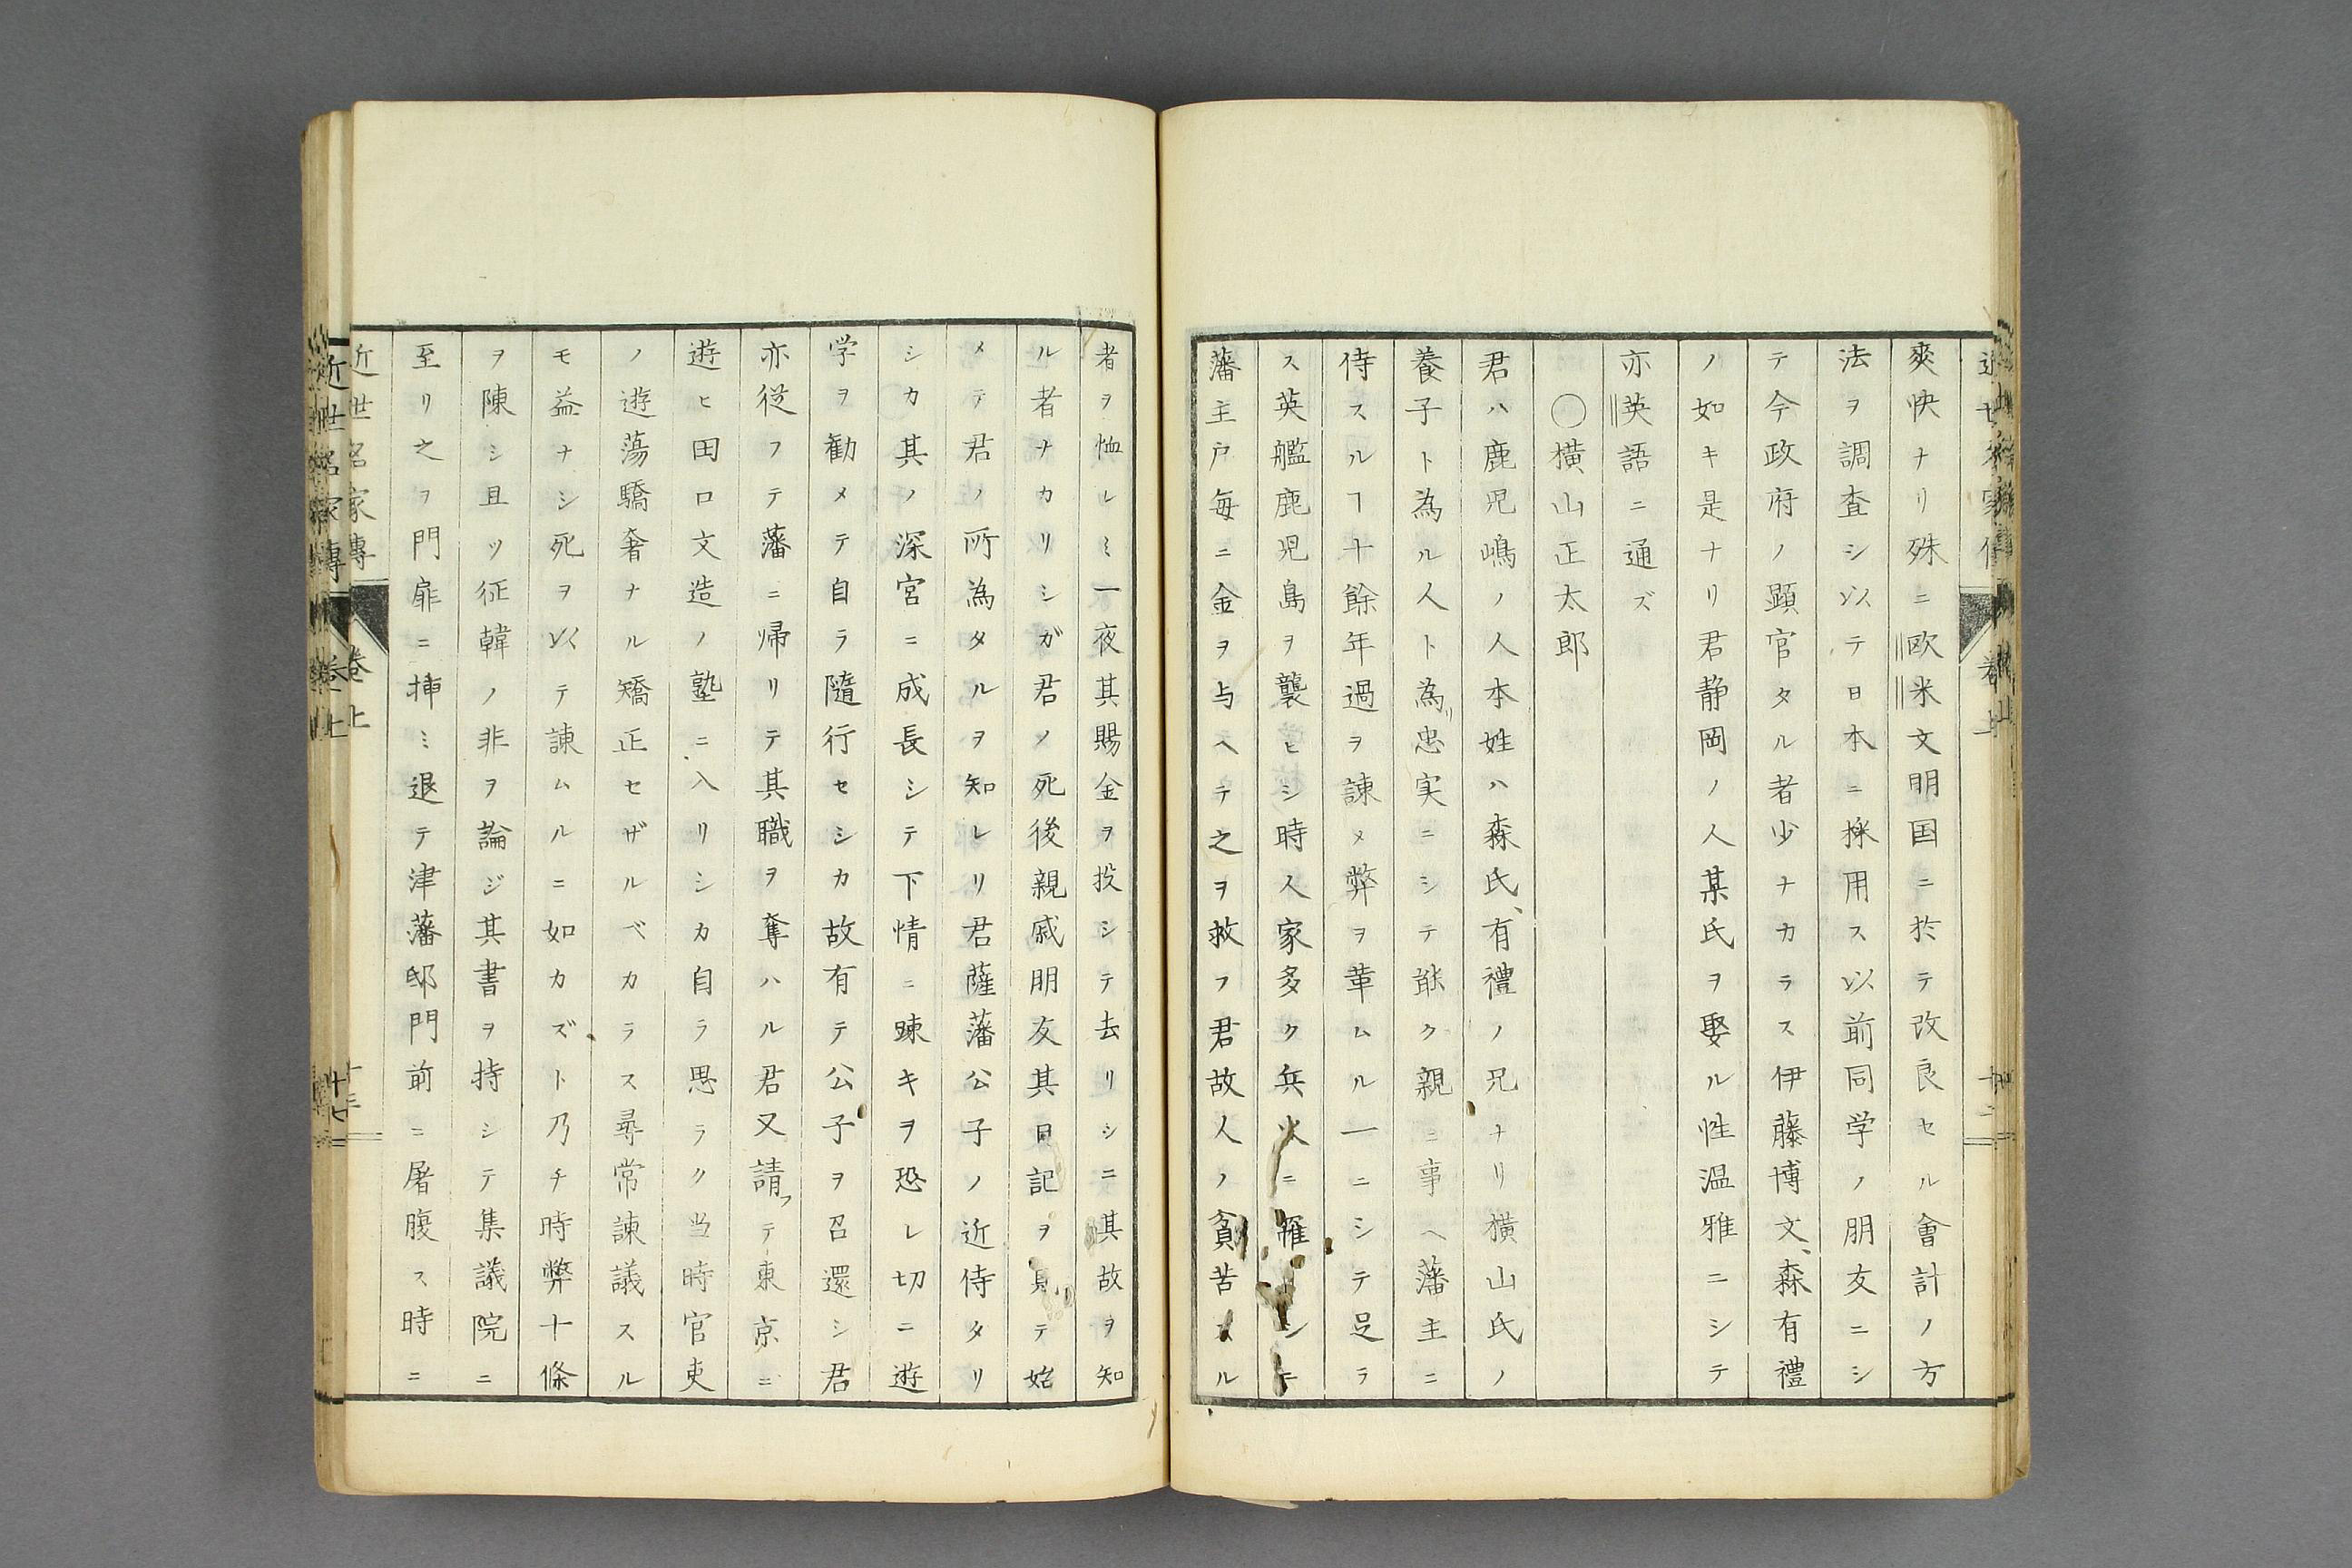 爽快ナリ殊ニ欧米文明国ニ於テ改良セル會計ノ方
法ヲ調査シ以テ日本ニ採用ス以前同学ノ朋友ニシ
テ今政府ノ顕官タル者少ナカラス伊藤博文、森有禮
ノ如キ是ナリ君静岡ノ人某氏ヲ娶ル性温雅ニシテ
亦英語ニ通ズ
〇横山正太郎
君ハ鹿児嶋ノ人本姓ハ森氏、有禮ノ兄ナリ横山氏ノ
養子ト為ル人ト為リ忠実ニシテ能ク親ニ事ヘ藩主ニ
侍スルヿ十餘年過ヲ諌メ弊ヲ革ムル一ニシテ足ラ
ス英艦鹿児島ヲ襲ヒシ時人家多ク兵火ニ罹リシニ
藩主戸毎ニ金ヲ与ヘテ之ヲ救フ君故人ノ貧苦スル
者ヲ恤レミ一夜其賜金ヲ投シテ去リシニ其故ヲ知
ル者ナカリシガ君ノ死後親戚朋友其日記ヲ見テ始
メテ君ノ所為タルヲ知レリ君薩藩公子ノ近侍タリ
シカ其ノ深宮ニ成長シテ下情ニ踈キヲ恐レ切ニ遊
学ヲ勧メテ自ラ隨行セシカ故有テ公子ヲ召還シ君
亦従フテ藩ニ帰リテ其職ヲ奪ハル君又請フテ東京ニ
遊ヒ田口文造ノ塾ニ入リシカ自ラ思ラク当時官吏
ノ遊蕩驕奢ナル矯正セザルベカラス尋常諌議スル
モ益ナシ死ヲ以テ諌ムルニ如カズト乃チ時弊十條
ヲ陳シ且ツ征韓ノ非ヲ論ジ其書ヲ持シテ集議院ニ
至リ之ヲ門扉ニ挿ミ退テ津藩邸門前ニ屠腹ス時ニ
近世名家傳 卷上 十三